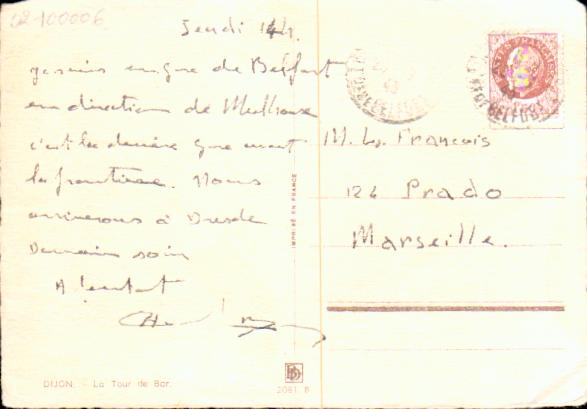 02-100006
Jeudi 14h
je suis en gare de Belfort
en direction de Mulhouse
c'est la dernière gare avant
la frontière. Nous
arriverons à Dresde
Demain soir
A bientot
M. François
124 Prado
Marseille.
IMPRIMÉ EN FRANCE
DIJON. - La Tour de Bar.
2081. B
BELFORT